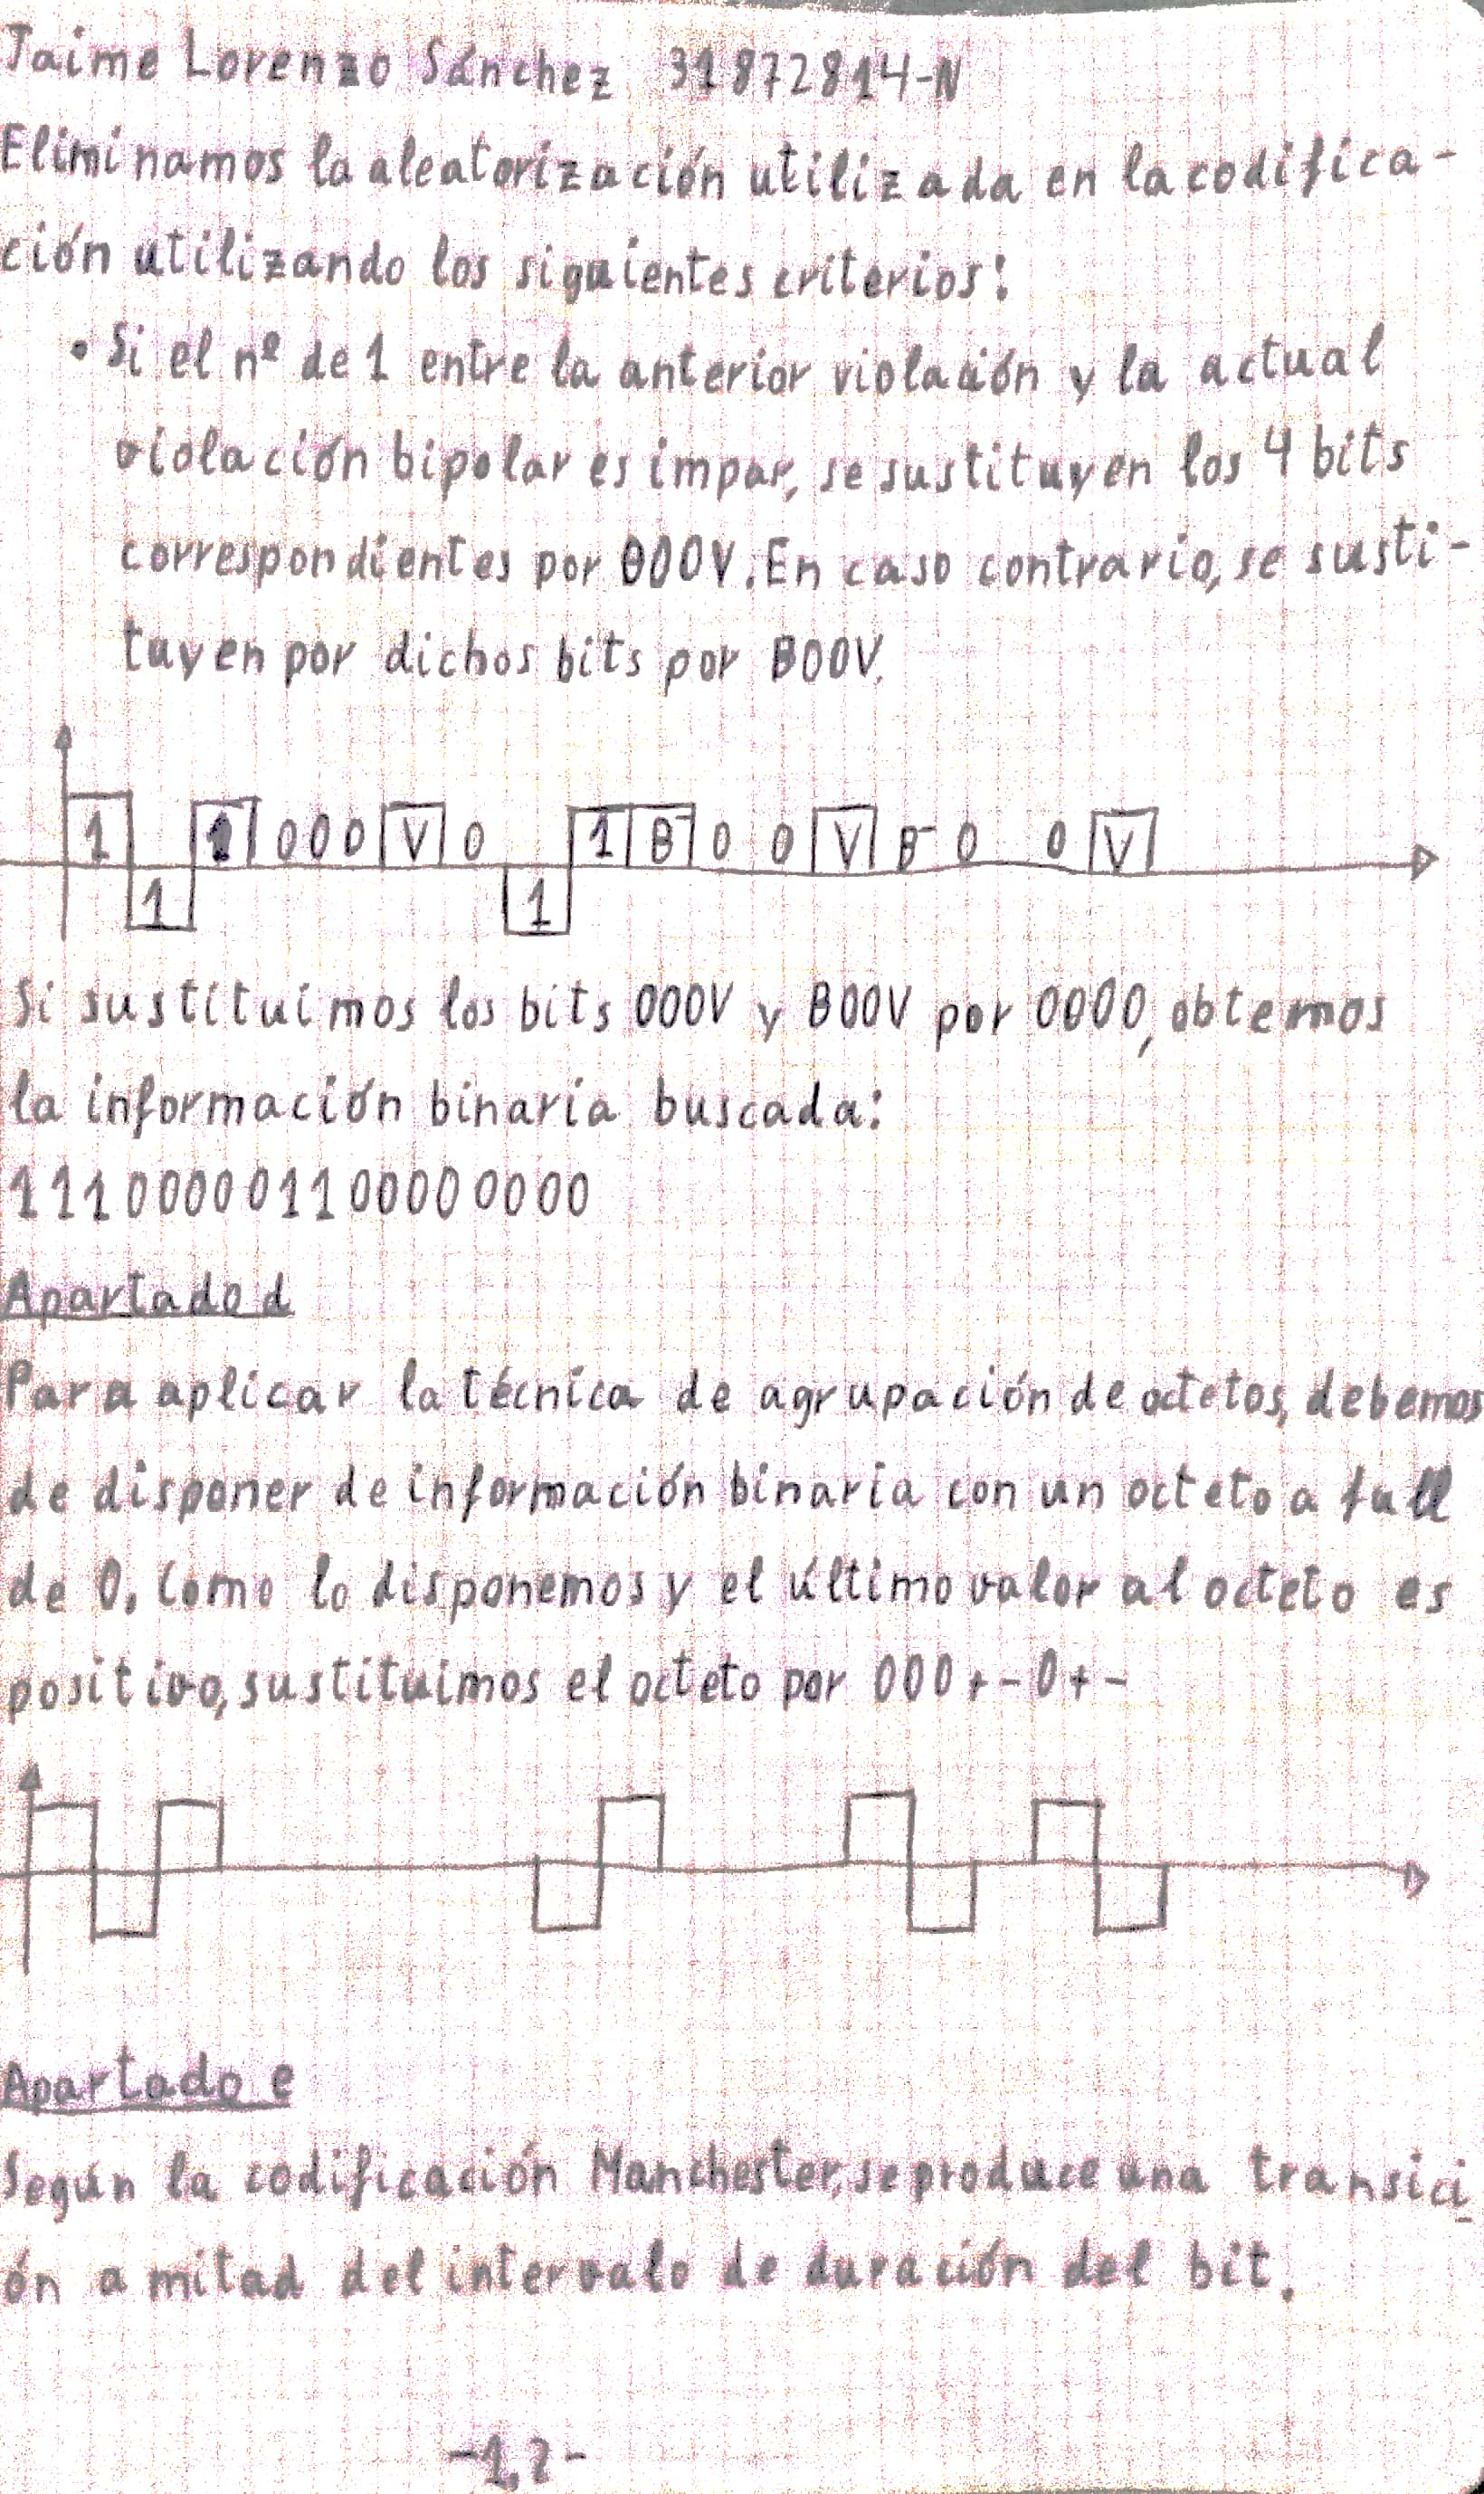 Jaime Lorenzo Sánchez 31872814-N
Eliminamos la aleatorización utilizada en la codifica-
ción utilizando los siguientes criterios:
• Si el nº de 1 entre la anterior violación y la actual
violación bipolar es impar, se sustituyen los 4 bits
correspondientes por 000V. En caso contrario, se susti-
tuyen por dichos bits por B00V.
1 1 0 0 0 V 0 1 B- 0 0 V B- 0 0 V
1 1
Si sustituimos los bits 000V y B00V por 0000, obtemos
la información binaria buscada:
111000001100000000
Apartado d
Para aplicar la técnica de agrupación de octetos, debemos
de disponer de información binaria con un octeto a full
de 0. Como lo disponemos y el último valor al octeto es
positivo, sustituimos el octeto por 000+-0+-
Apartado e
Según la codificación Manchester, se produce una transici
ón a mitad del intervalo de duración del bit.
-1,2-